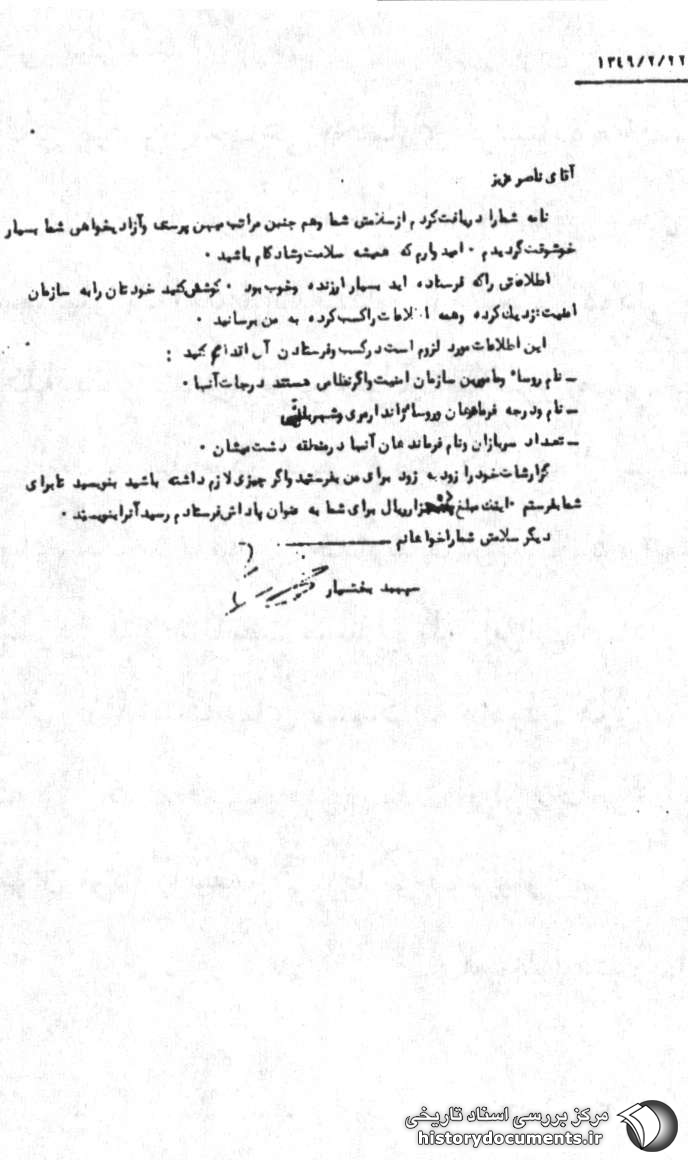 ۱۳٤۹/۲/۲۲
آقای ناصر عزیز
نامه شمارا دریافت کردم ازسلامتی شما وهم چنین مراتب میهن پرستی وآزادیخواهی شما بسیار
خوشوقت گردیدم ۰ امیدوارم که همیشه سلامت وشادکام باشید ۰
اطلاعاتی راکه فرستاده اید بسیار ارزنده وخوب بود ۰ کوشش کنید خودتان رابه سازمان
امنیت نزدیک کرده وهمه اطلاعات راکسب کرده به من برسانید ۰
این اطلاعات مورد لزوم است درکسب وفرستادن آن اقدام کنید :
ـ نام روساء ومامورین سازمان امنیت واگرنظامی هستند درجات آنها ۰
ـ نام ودرجه فرماندهان وروسا ژاندارمری وشهربانی
ـ تعداد سربازان ونام فرماندهان آنها درمنطقه دشت میشان ۰
گزارشات خودرا زود به زود برای من بفرستید واگر چیزی لازم داشته باشید بنویسید تابرای
شما بفرستم ۰ اینک مبلغ هزارریال برای شما به عنوان پاداش فرستادم رسید آنرا بنویسید ۰
دیگر سلامتی شمارا خواهانم
سپهبد بختیار
مرکز بررسی اسناد تاریخی
historydocuments.ir